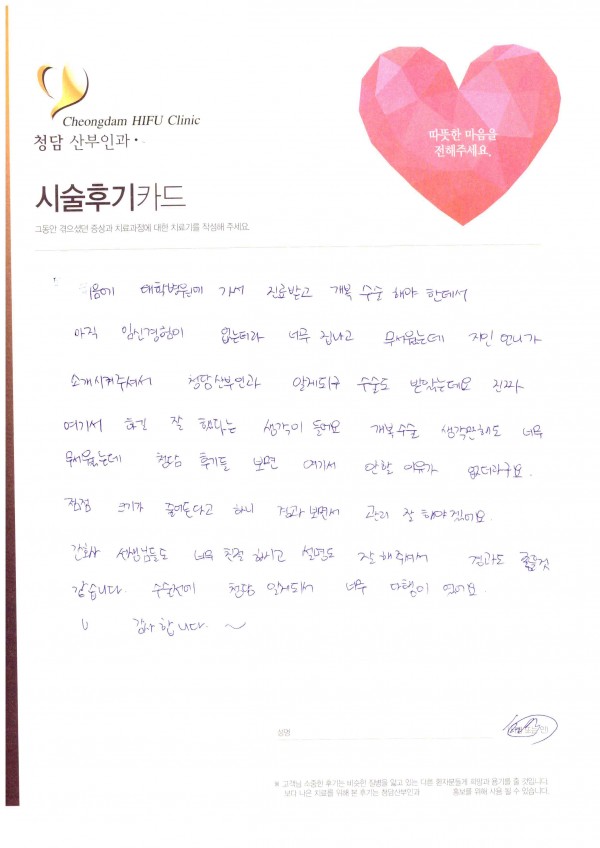 Cheongdam HIFU Clinic
청담 산부인과
따뜻한 마음을
전해주세요.
시술후기카드
그동안 겪으셨던 증상과 치료과정에 대한 치료기를 작성해 주세요.
처음에 대학병원에 가서 진료받고 개복 수술 해야 한데서
아직 임신경험이 없는데라 너무 겁나고 무서웠는데 지인 언니가
소개시켜주셔서 청담산부인과 알게되구 수술도 받았는데요 진짜
여기서 하길 잘 했다는 생각이 들어요 개복수술 생각만해도 너무
무서웠는데 청담 후기들 보면 여기서 안할 이유가 없더라구요.
점점 크기가 줄어든다고 하니 경과보면서 관리 잘 해야겠어요.
간호사 선생님들도 너무 친절하시고 설명도 잘해주셔서 결과도 좋을것
같습니다. 수술전에 청담 알게돼서 너무 다행이였어요.
감사합니다. ~
성명
※ 고객님 소중한 후기는 비슷한 질병을 앓고 있는 다른 환자분들게 희망과 용기를 줄 것입니다.
보다 나은 치료를 위해 본 후기는 청담산부인과 홍보를 위해 사용 될 수 있습니다.